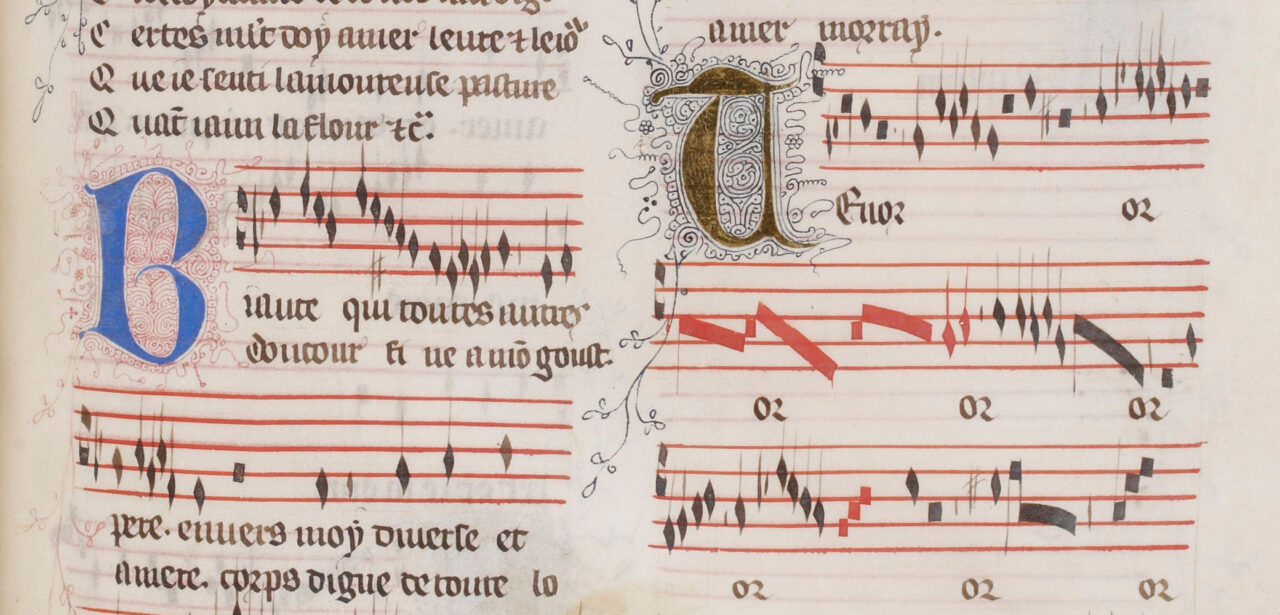 C ertes mlt doy amer leure ⁊ leior
Q ue ie senti lamoureuse pasture
Q uāt iaim la flour ⁊c̄.
B iaute qui toutes autres
doutour fi ne a mō goust.
pere. enuers moy diuerse et
amere. corps digne de toute lo
amer morray.
T Enor or
or or or
or or or